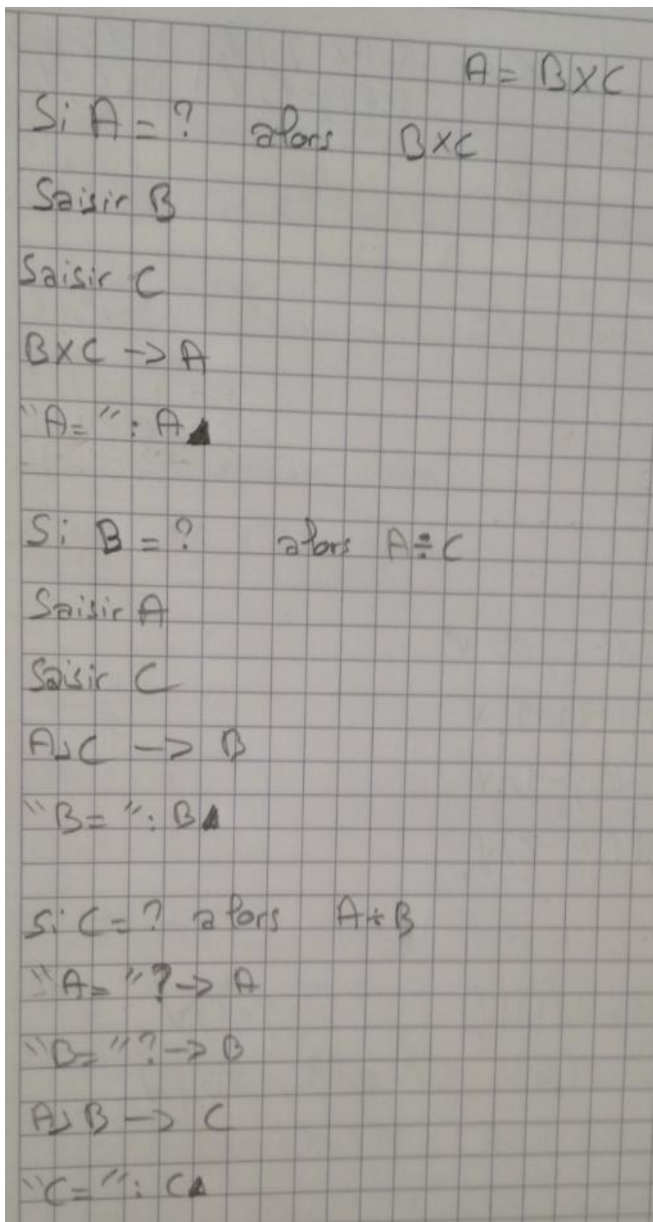 A = B×C
Si A = ? alors B×C
Saisir B
Saisir C
B×C -> A
"A= ": A◢
Si B = ? alors A÷C
Saisir A
Saisir C
A⌟C -> B
"B= ": B◢
Si C = ? alors A÷B
"A= "? -> A
"B= "? -> B
A⌟B -> C
"C= ": C◢